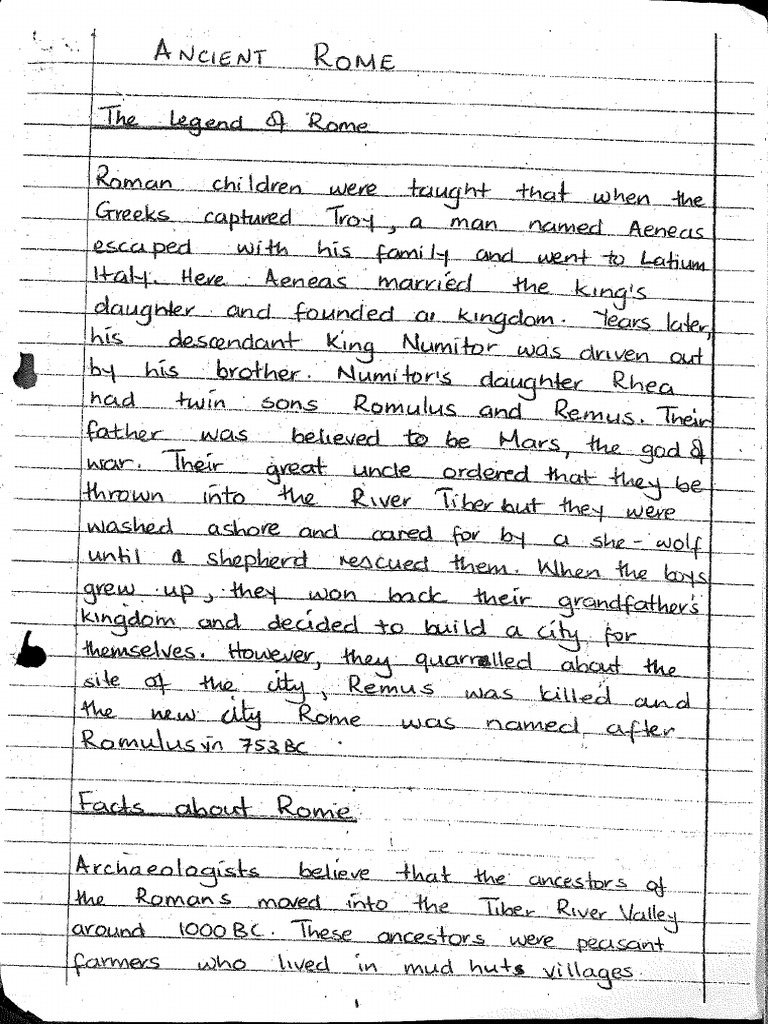 ANCIENT ROME
The legend of Rome
Roman children were taught that when the
Greeks captured Troy, a man named Aeneas
escaped with his family and went to Latium
Italy. Here Aeneas married the king's
daughter and founded a kingdom. Years later,
his descendant King Numitor was driven out
by his brother. Numitor's daughter Rhea
had twin sons Romulus and Remus. Their
father was believed to be Mars, the god of
war. Their great uncle ordered that they be
thrown into the River Tiber but they were
washed ashore and cared for by a she-wolf
until a shepherd rescued them. When the boys
grew up, they won back their grandfather's
kingdom and decided to build a city for
themselves. However, they quarrelled about the
site of the city, Remus was killed and
the new city Rome was named after
Romulus in 753 BC.
Facts about Rome
Archaeologists believe that the ancestors of
the Romans moved into the Tiber River Valley
around 1000 BC. These ancestors were peasant
farmers who lived in mud huts villages.
1